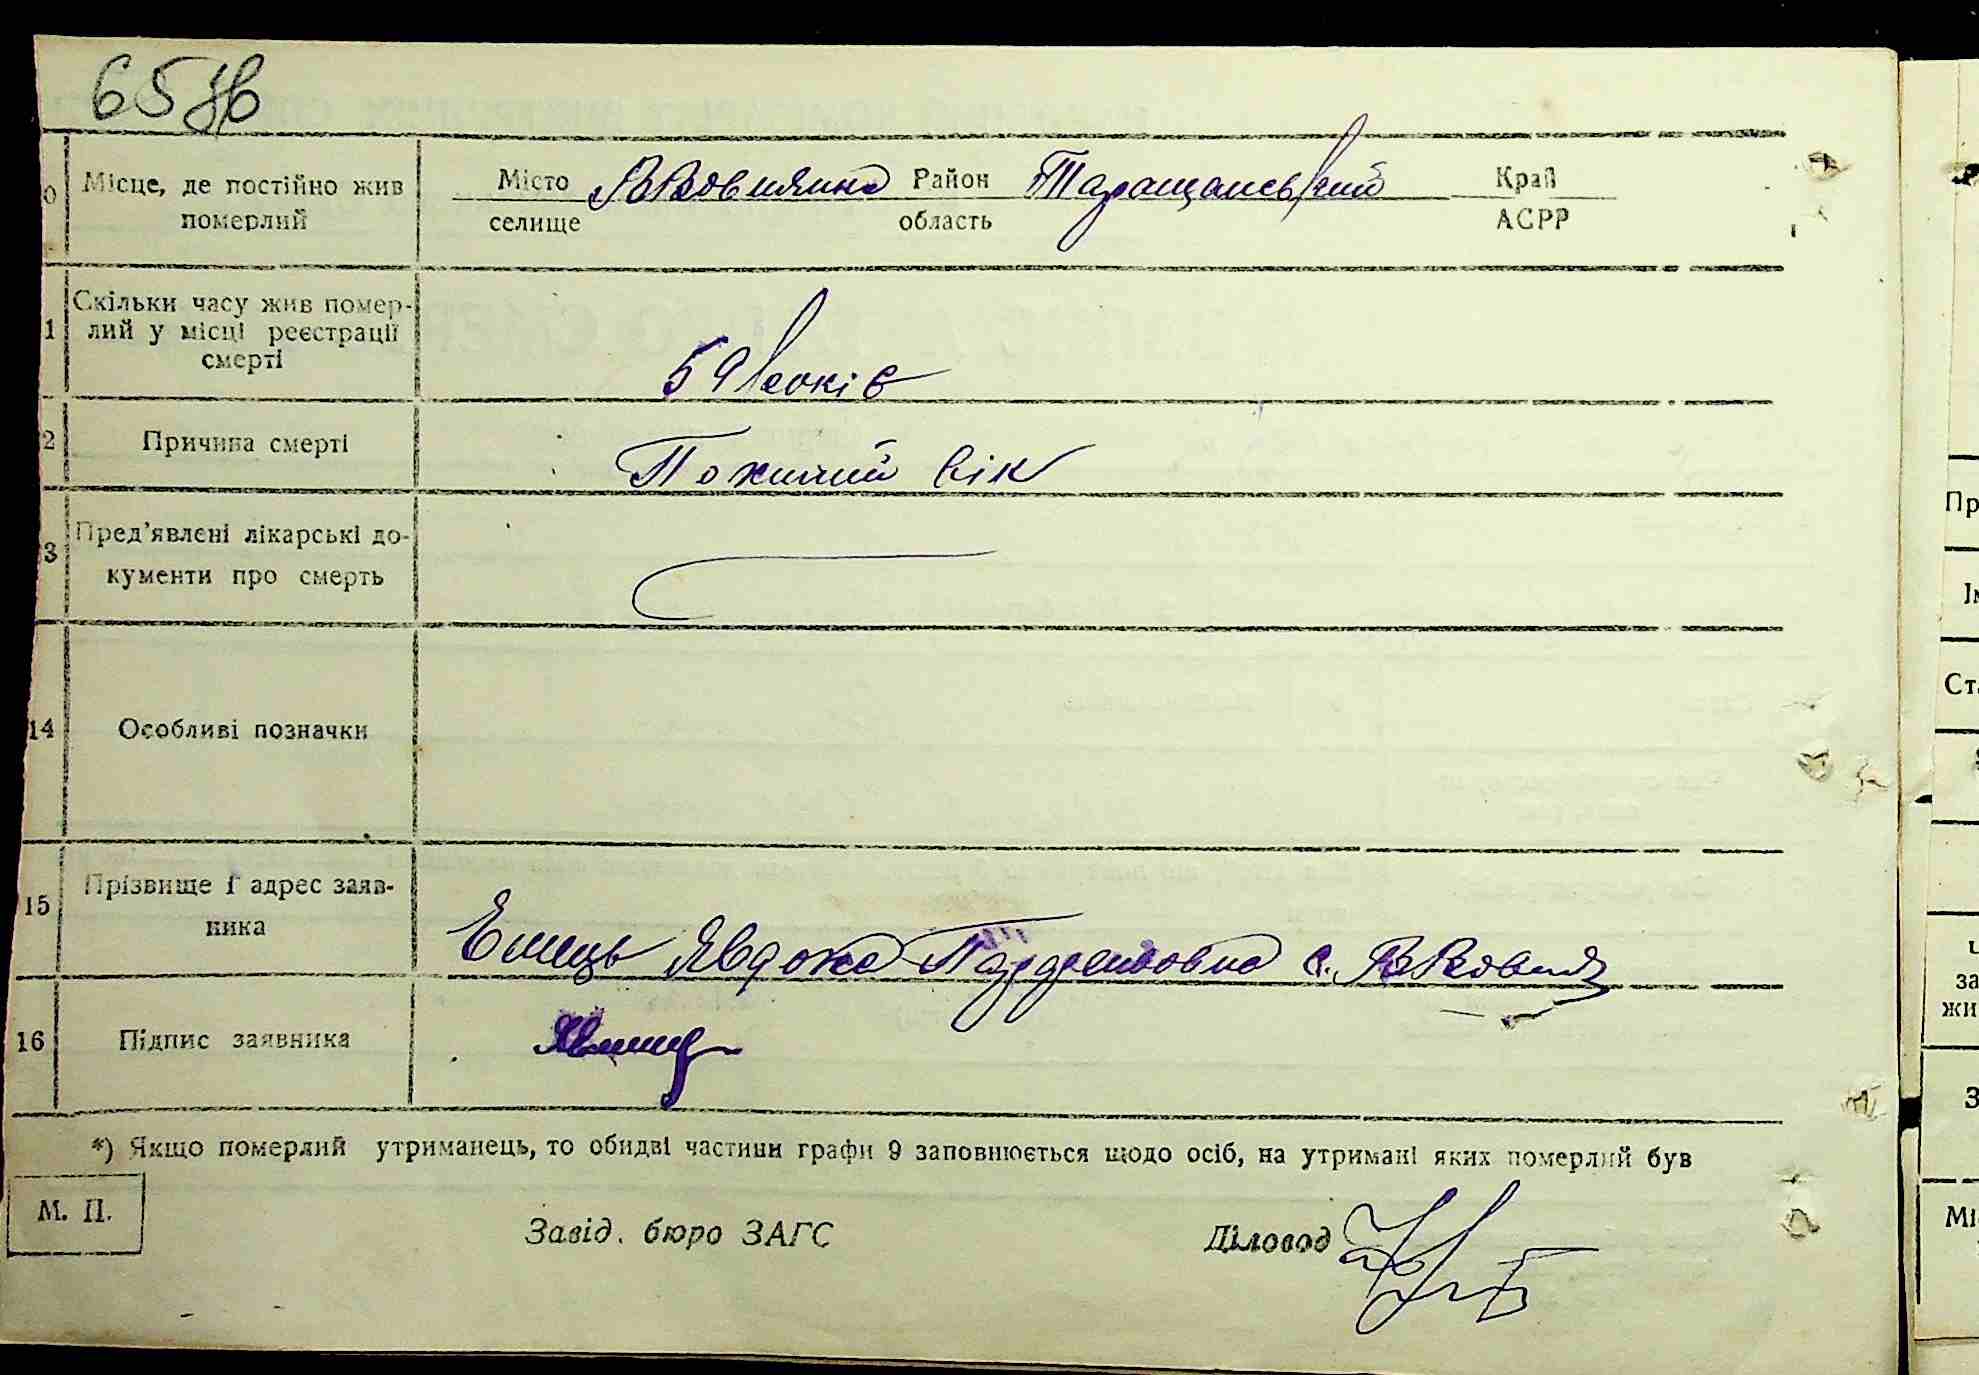 65
0 Місце, де постійно жив померлий
Місто В Вовнянка Район Таращанський Край
селище область АСРР
1 Скільки часу жив помер-
лий у місці реєстрації
смерті
59 років
2 Причина смерті Похилий вік
3 Пред'явлені лікарські до-
кументи про смерть
14 Особливі позначки
15 Прізвище і адрес заяв-
ника
Емець Явдоха с. В Вовнян
16 Підпис заявника
*) Якщо померлий утриманець, то обидві частини графи 9 заповнюється щодо осіб, на утримані яких померлий був
М. П.
Завід. бюро ЗАГС Діловод
Пр
Ст
за
жи
З
Мі